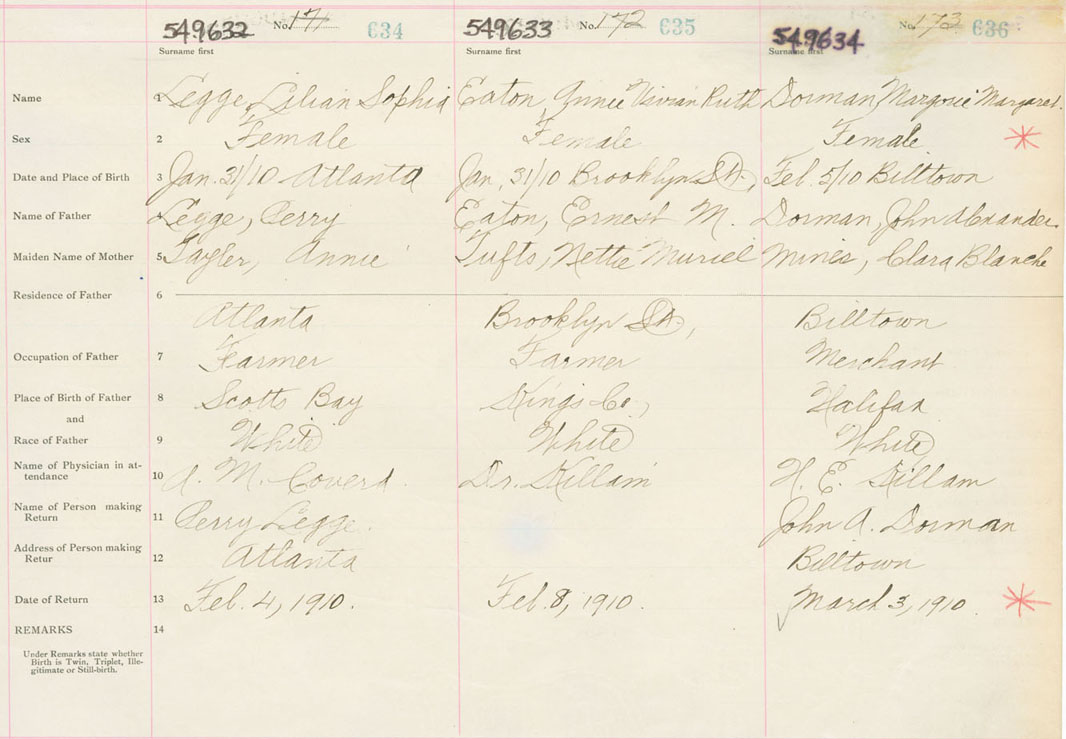 549632 No. 171 634 549633 No. 172 635 549634 No. 173 636
Surname first Surname first Surname first
Name 1 Legge, Lilian Sophia Eaton, Annie Vivian Ruth Dorman, Marjorie Margaret.
Sex 2 Female Female Female
Date and Place of Birth 3 Jan. 31/10 Atlanta Jan, 31/10 Brooklyn St., Feb. 5/10 Billtown
Name of Father 4 Legge, Perry Eaton, Ernest M. Dorman, John Alexander
Maiden Name of Mother 5 Tayler, Annie Tufts, Nettie Muriel Mines, Clara Blanche
Residence of Father 6
Atlanta Brooklyn St., Billtown
Occupation of Father 7 Farmer Farmer Merchant
Place of Birth of Father 8 Scotts Bay Kings Co., Halifax
and
Race of Father 9 White White White
Name of Physician in at-
tendance 10 A. M. Covert. Dr. Killam H. E. Killam
Name of Person making
Return 11 Perry Legge. John A. Dorman
Address of Person making
Retur 12 Atlanta Billtown
Date of Return 13 Feb. 4, 1910. Feb. 8, 1910. March 3, 1910.
REMARKS 14
Under Remarks state whether
Birth is Twin, Triplet, Ille-
gitimate or Still-birth.